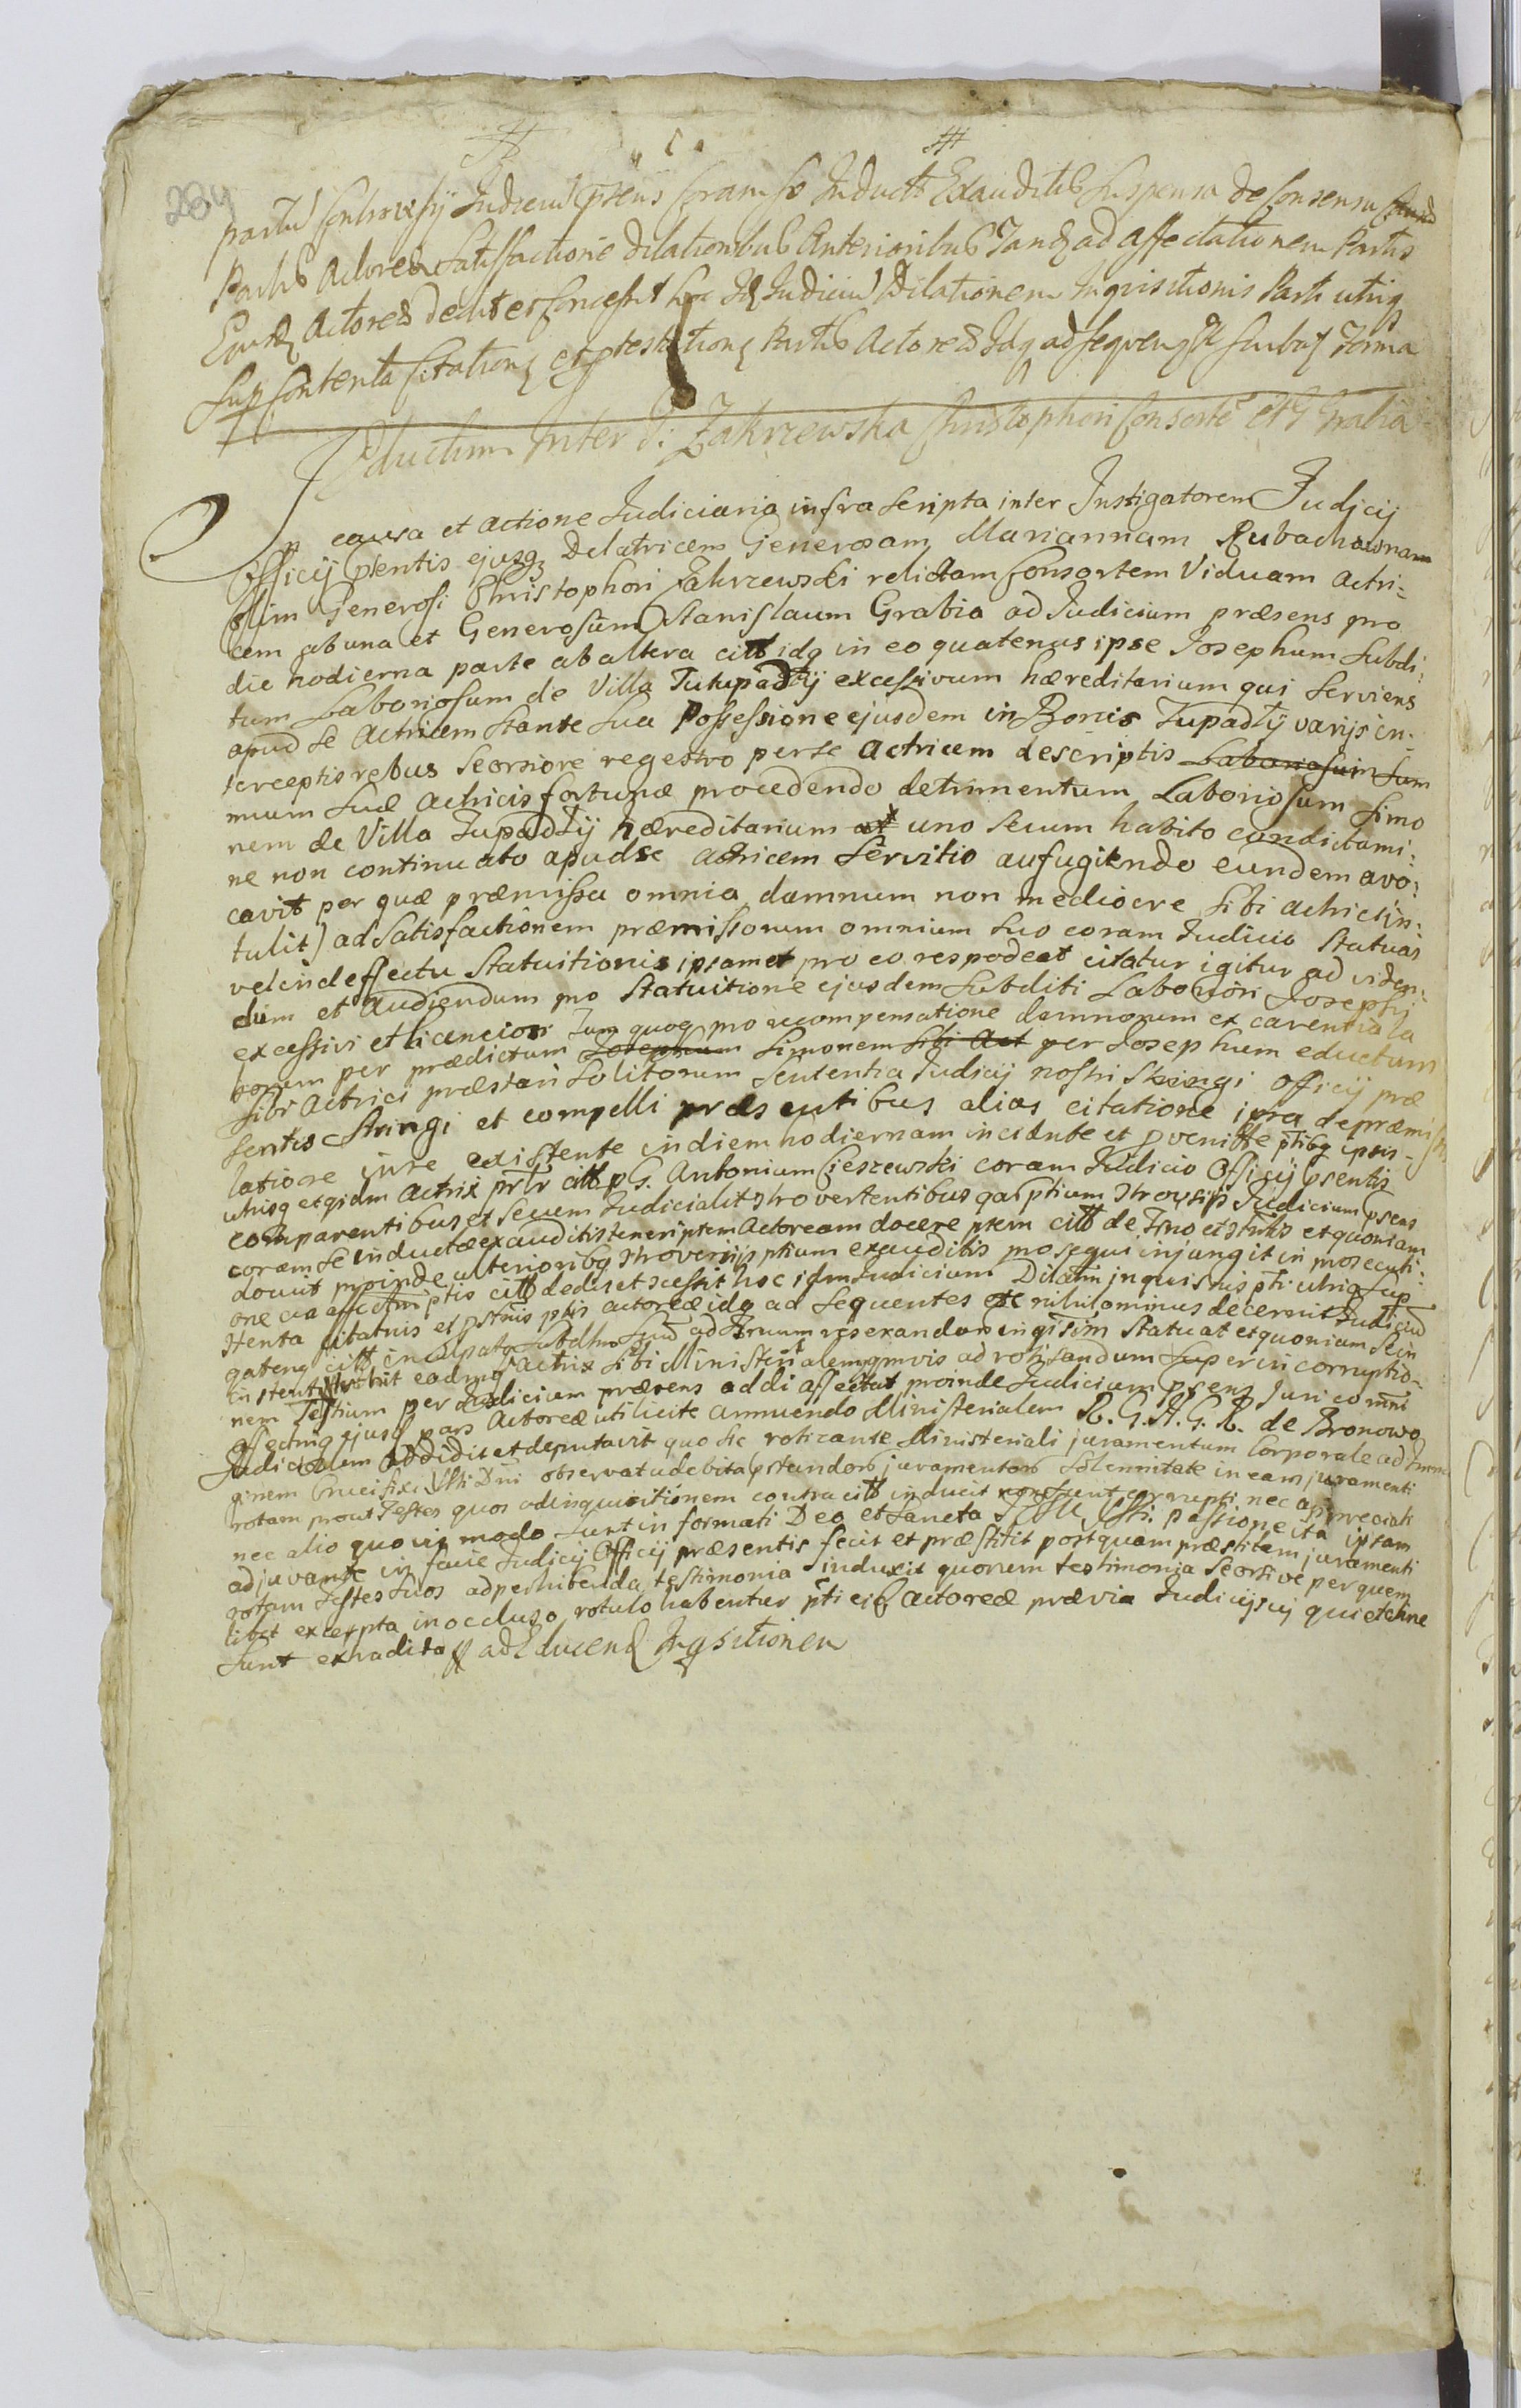 284
Partiu Controversijs Judiciu psens Coram se Inductis Exauditis Suspensa de Consensu
Partis Actoreæ Satisfactione Dilationibus Anterioribus Tandem ad affectationem Partis
Ejusdem Actoreæ dedit et Concessit hoc Id Judiciu Dilationem Inquisitionis Parti utriq
Sup Contenta Citationis et ptestationis Partis Actoreæ Idq ad sequens
Eductum Inter G. Zakrzewska Christophori Consorte et G Grabia
In causa et actione Judiciaria infra scripta inter Instigatorem Judicij
Officij psentis ejusq Delatricem Generosam Mariannam Rubachowna
olim Generosi Christophori Zakrzewski relictam Consortem Viduam actri:
cem ab una et Generosum Stanislaum Grabia ad Judicium præsens pro
die hodierna parte ab altera citt idq in eo quatenus ipse Josephum Subdi:
tum Laboriosum de Villa Tupadly excessivum hæreditarium qui Serviens
apud se Actricem stante sua Possessione ejusdem in Bonis Tupadly varijs in:
terceptis rebus Seorsiore regestro per se Actricem descriptis Laboriosum Sum
mum suæ Actricis fortunæ procedendo detrimentum Laboriosum Simo
nem de Villa Tupadly hæreditarium uno secum habito condictami:
ne non continuato apud se actricem Servitio aufugiendo eundem avo:
cavit per quæ præmissa omnia damnum non mediocre sibi actrici in:
tulit) ad satisfactionem præmissorum omnium suo coram Judicio Statuas
vel in deffectu Statuitionis ipsamet pro eo respodeat citatur igitur ad viden:
dum et audiendum pro Statuitione ejusdem Subditi Laboriosi Josephi
excessivi et licencion Tum quoq pro recompensatione damnorum ex carentia la
borum per prædictum Josephum Simonem sibi Act per Josephum eductum
sibi Actrici præstari solitorum Sententia Judicij nostri Stringi Officij præ
sentis Stringi et compelli præsentibus alias citatione ipsa de præmiss
latiore in re existente in diem hodiernam incidente et pvenitte ptibq ipsis
utrisq et qidm Actrix prlr citt p G. Antonium Cieszewski coram Judicio Officij psentis
comparentibus et secum Judicialit ntrovertentibus qarptium ntrovsijs Judicium psens
coram se inductæ exauditis teneri ptem Actoream docere ptem citt de Trno et stntis et quoniam
docuit proinde ulterioribq ntroversijs ptium exauditis prosequi injungit in prosecuti:
one cia affectni ptis citt dedit et ncessit hoc idm Judicium Dilatm inquisnis pti utriq sup
ntenta citatnis et pstnis ptis actoreæ idq ad sequentes etc nihilominus decernit Judiciu
qateng citt inculpatq subdtm suu ad Trnum reserandam inqisim Statuat et quoniam se in
instenti eadmq Actrix sibi Ministerialem qmvis ad rotisandum super in corruptio-
nem Testium per Judicium præsens addi affectat proinde Judicium psens Juri comni
affectniq ejusd pars Actoreæ uti licite annuendo Ministerialem R. G. A. G. R. de Bronowo
Judicialem addidit et deputavit quo sic rotizante Ministeriali juramentum Corporale ad Ima
ginem Crucifixi Xsti Dni observatu debita pstandor juramentor Solennitate in eam juramenti
rotam prout Testes quos ad inquisitionem contra citt inducit non sunt corrupti nec appreciati
nec alio quovis modo sunt informati Deo et Sancta JESU Xsti passione ita ipsam
adjuvante in facie Judicij Officij præsentis fecit et præstitit post quam præstitam juramenti
rotam Testes suos ad perhibenda testimonia induxit quorum testimonia Seorsive per quem
libet excerpta in occluso rotulo habentur pti eid actoreæ prævia Judicij scij quietatne
sunt extradita ad Educend Inqsitionem